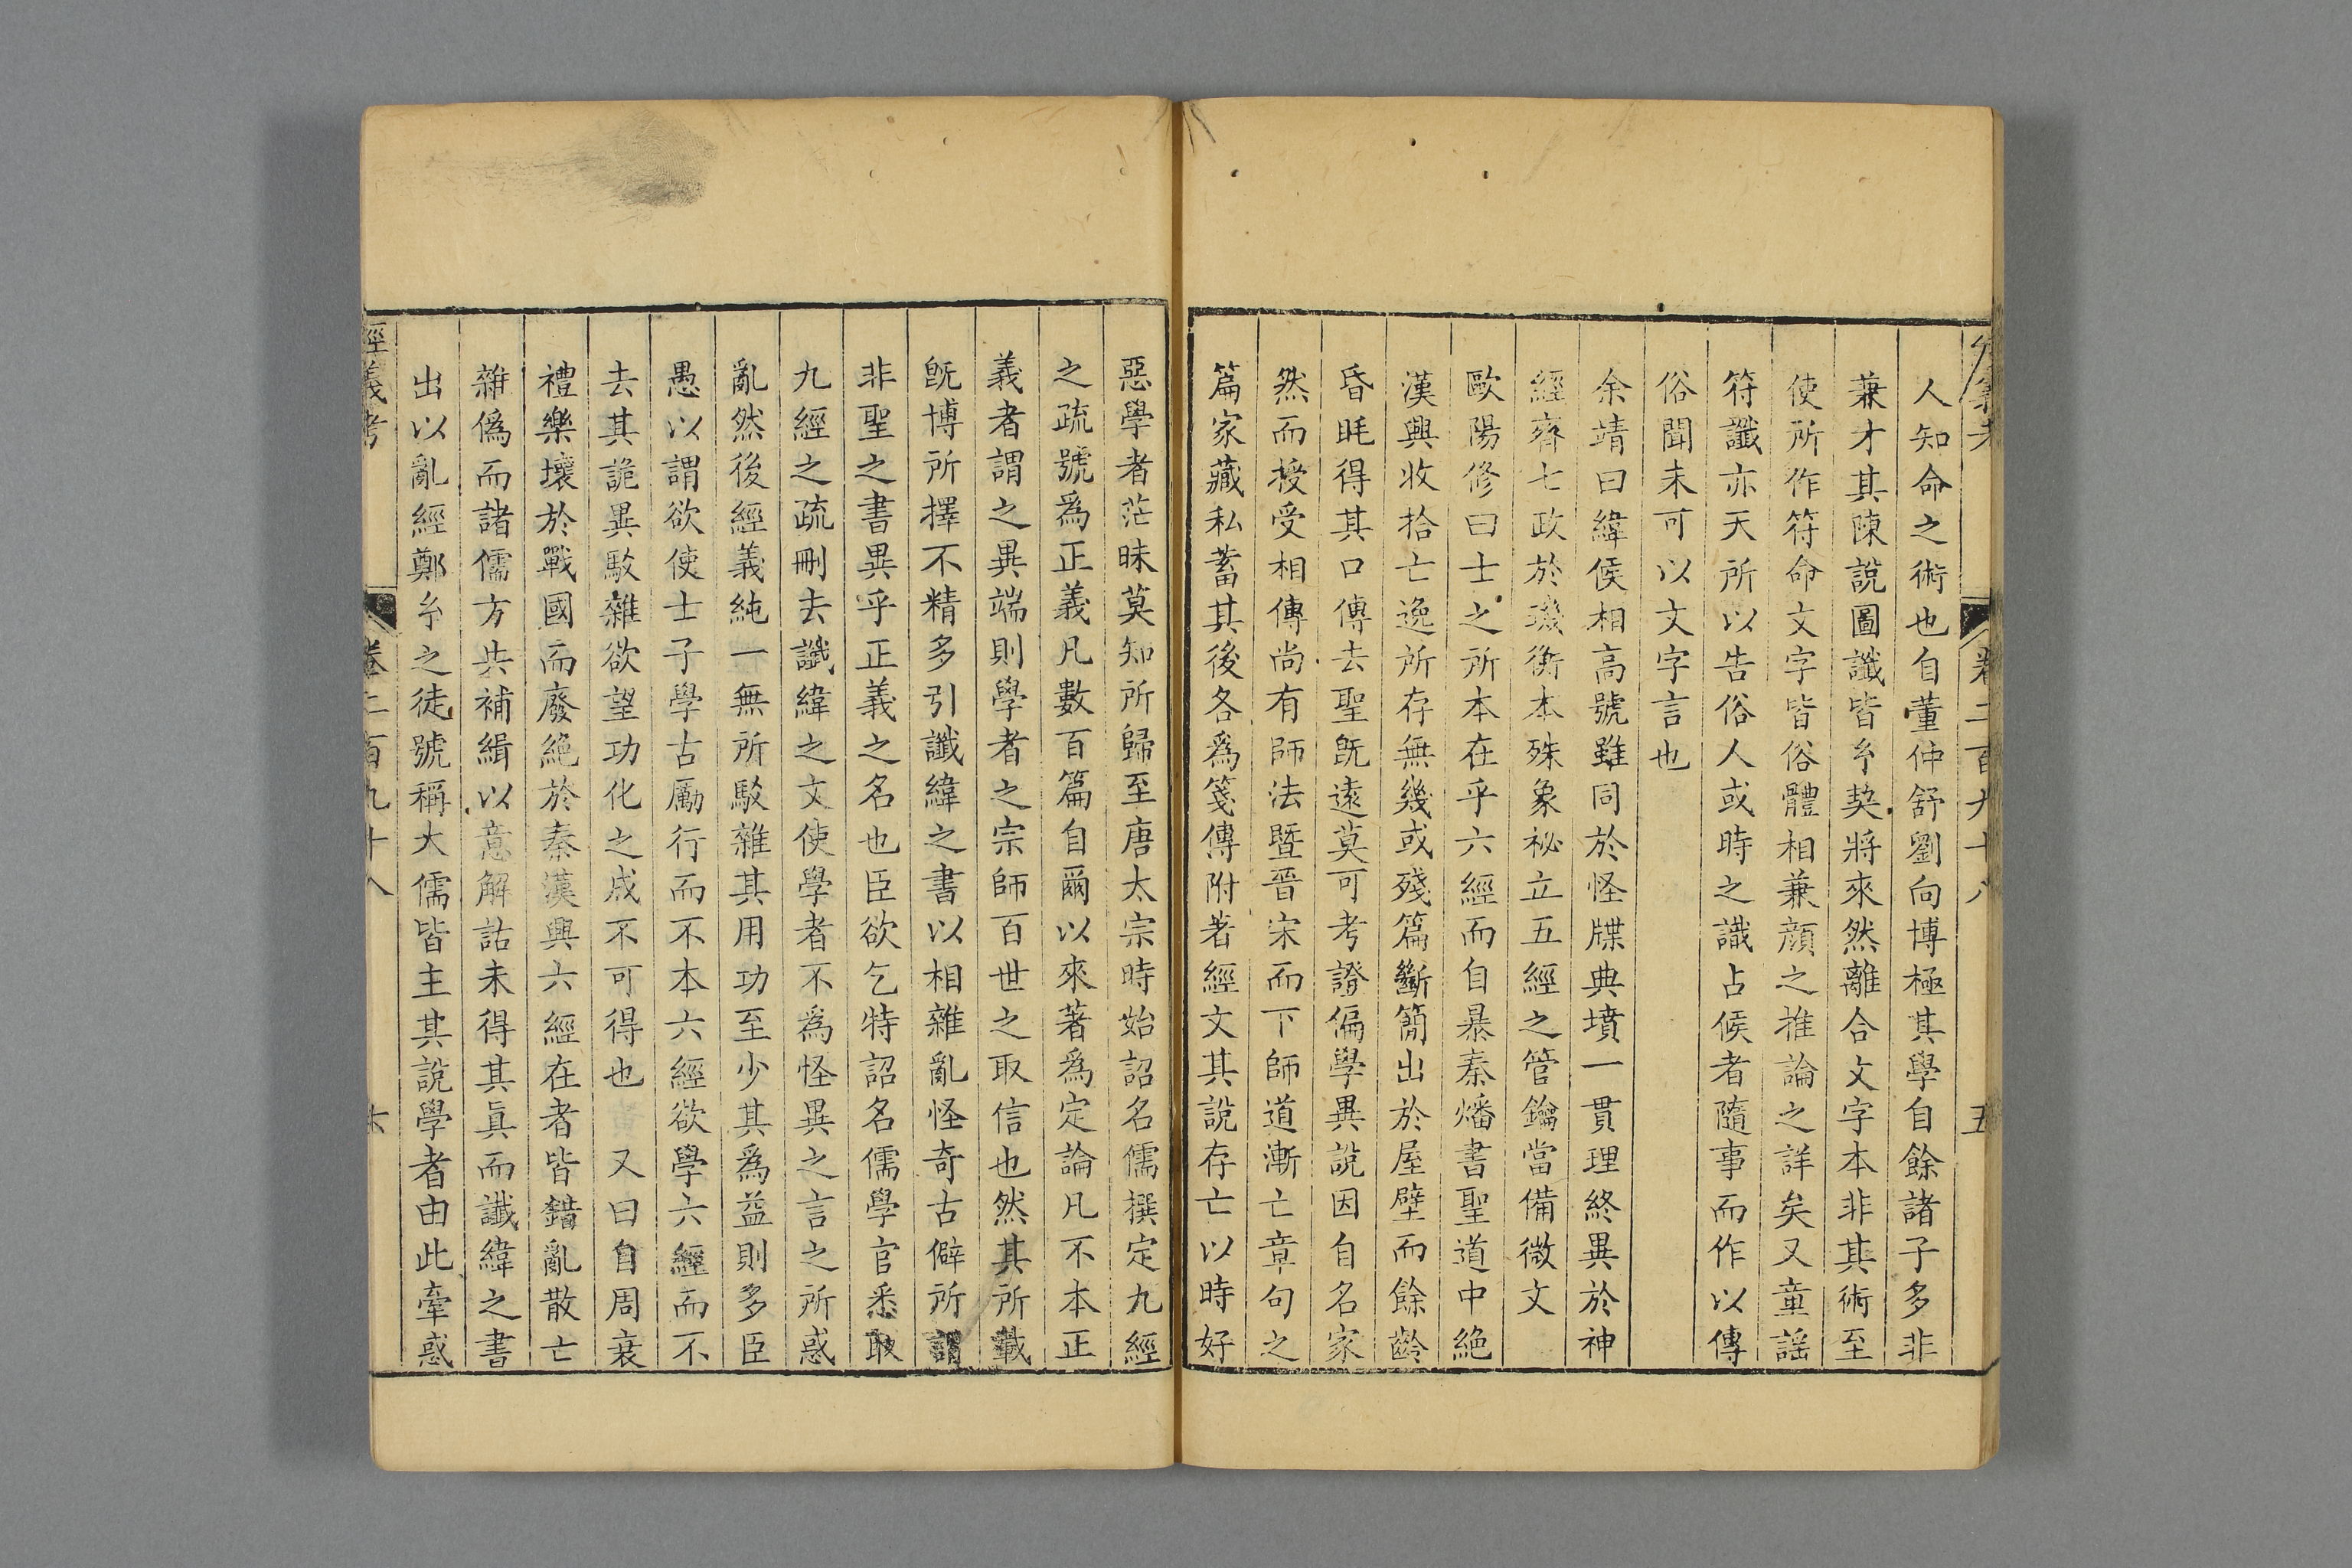 人知命之術也自董仲舒劉向博極其學自餘諸子多非
兼才其陳說圖讖皆𢆯契將來然離合文字本非其術至
使所作符命文字皆俗體相兼顔之推論之詳矣又童謡
符讖亦天所以告俗人或時之識占候者隨事而作以傳
俗聞未可以文字言也
余靖曰緯候相高號雖同於怪牒典墳一貫理終異於神
經齊七政於璣衡本殊象祕立五經之管鑰當備微文
歐陽修曰士之所本在乎六經而自暴秦燔書聖道中絶
漢興收拾亡逸所存無幾或殘篇斷簡出於屋壁而餘齡
昏眊得其口傳去聖旣遠莫可考證偏學異說因自名家
然而授受相傳尚有師法暨晉宋而下師道漸亡章句之
篇家藏私蓄其後各爲箋傳附著經文其說存亡以時好
惡學者茫昧莫知所歸至唐太宗時始詔名儒撰定九經
之疏號爲正義凡數百篇自爾以來著爲定論凡不本正
義者謂之異端則學者之宗師百世之取信也然其所載
旣博所擇不精多引讖緯之書以相雜亂怪奇古僻所謂
非聖之書異乎正義之名也臣欲乞特詔名儒學官悉取
九經之疏刪去讖緯之文使學者不爲怪異之言之所惑
亂然後經義純一無所駮雜其用功至少其爲益則多臣
愚以謂欲使士子學古勵行而不本六經欲學六經而不
去其詭異駮雜欲望功化之成不可得也 又曰自周衰
禮樂壞於戰國而廢絶於秦漢興六經在者皆錯亂散亡
雜僞而諸儒方共補緝以意解詁未得其眞而讖緯之書
出以亂經鄭𢆯之徒號稱大儒皆主其說學者由此牽惑
經義考 卷二百九十八 六